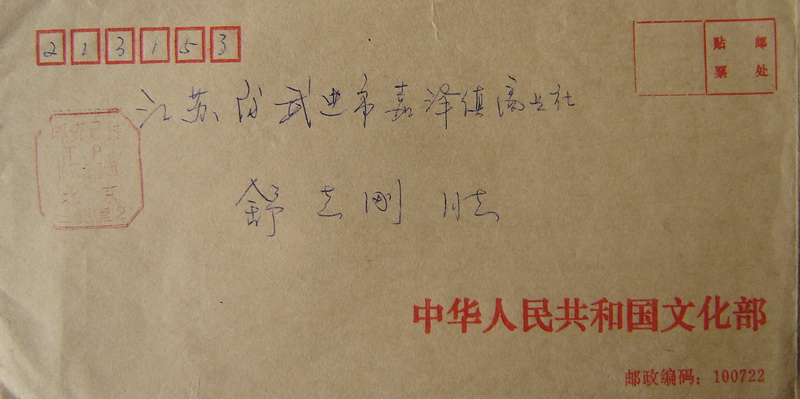 213153
贴 邮
票 处
江苏省武进市嘉泽镇
舒志刚 同志
北京
中华人民共和国文化部
邮政编码：100722